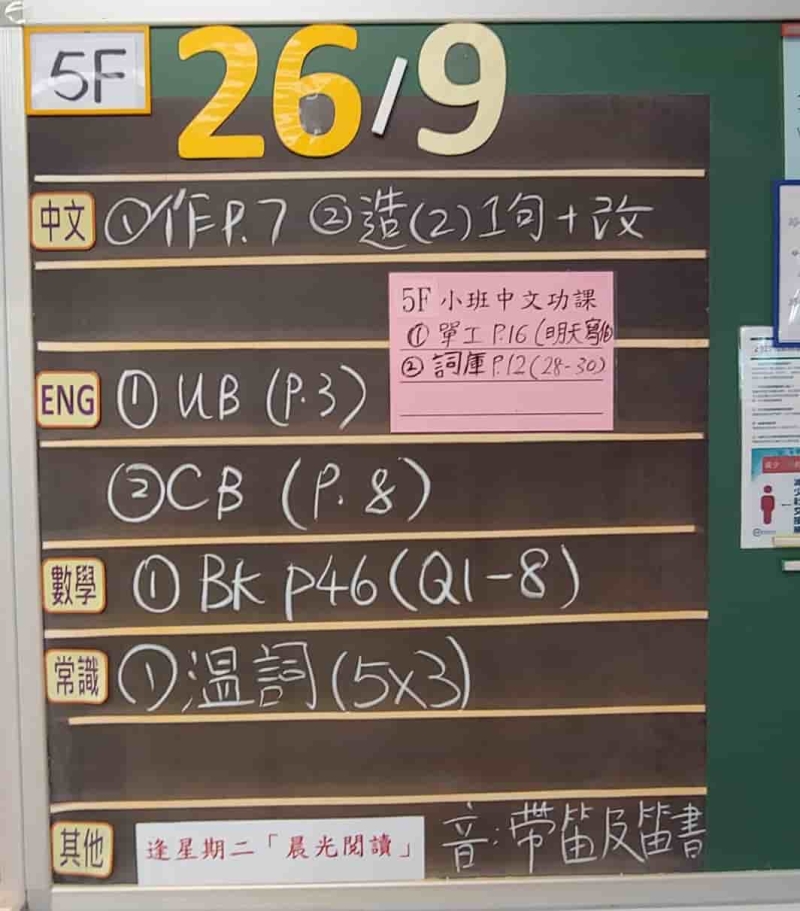 5F 26/9
中文 ①作P.7 ②造(2)1句+改
5F 小班中文功課
① 單工 P.16 (明天寫
② 詞庫 P.12(28-30)
ENG ① UB (P.3)
②CB (P.8)
數學 ① BK p46(Q1-8)
常識 ①溫詞(5x3)
其他 逢星期二「晨光閱讀」 音:帶笛及笛書